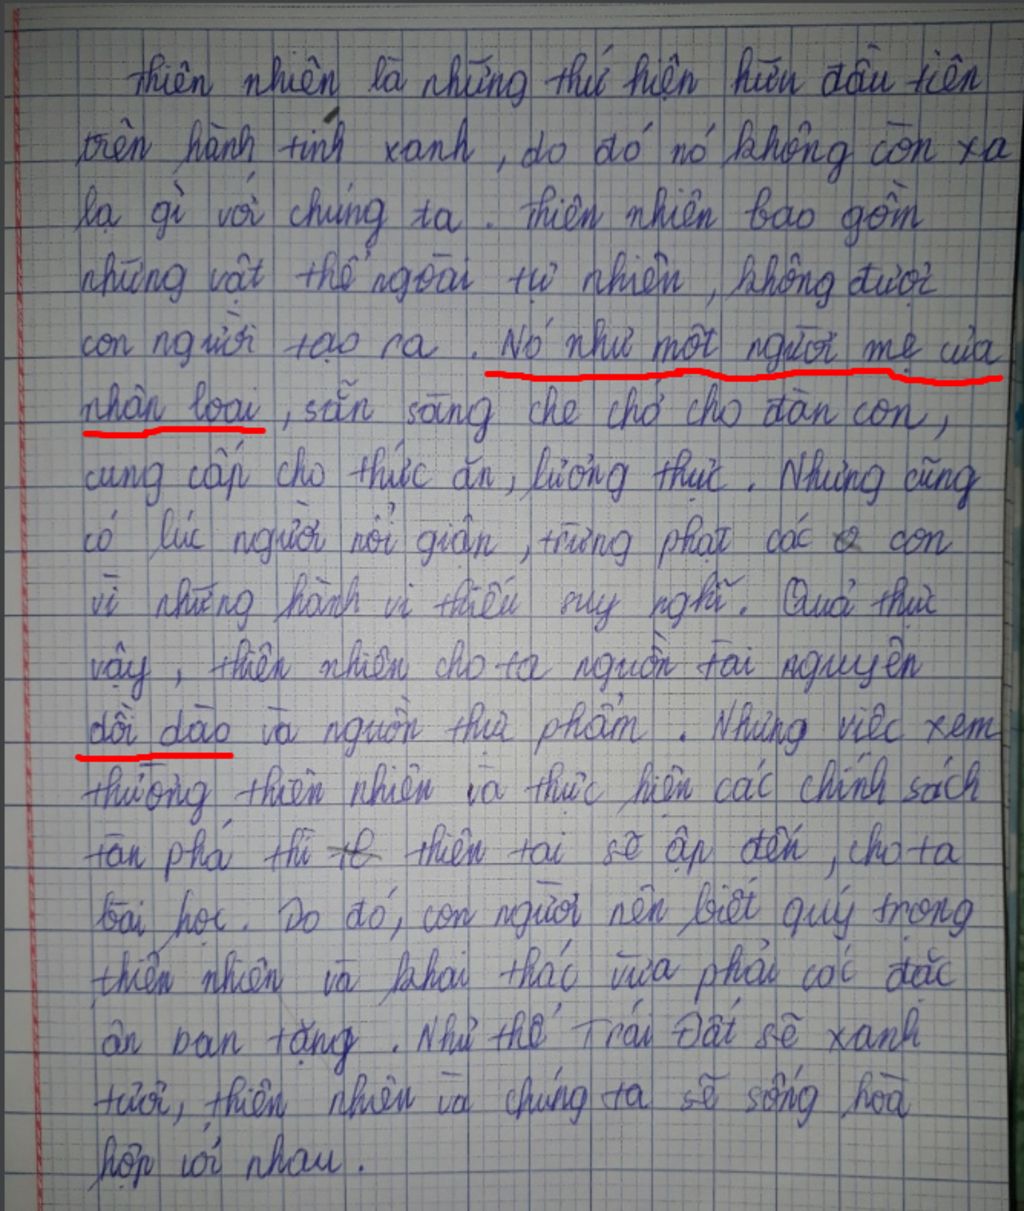 Thiên nhiên là những thứ hiện hữu đầu tiên
trên hành tinh xanh, do đó nó không còn xa
lạ gì với chúng ta. Thiên nhiên bao gồm
những vật thể ngoài tự nhiên, không được
con người tạo ra. Nó như một người mẹ của
nhân loại, sẵn sàng che chở cho đàn con,
cung cấp cho thức ăn, lương thực. Nhưng cũng
có lúc người nổi giận, trừng phạt các con
vì những hành vi thiếu suy nghĩ. Quả thực
vậy, thiên nhiên cho ta nguồn tài nguyên
dồi dào và nguồn thực phẩm. Nhưng việc xem
thường thiên nhiên và thực hiện các chính sách
tàn phá thì thiên tai sẽ ập đến, cho ta
bài học. Do đó, con người nên biết quý trọng
thiên nhiên và khai thác vừa phải các đặc
ân ban tặng. Như thế Trái Đất sẽ xanh
tươi, thiên nhiên và chúng ta sẽ sống hoà
hợp với nhau.